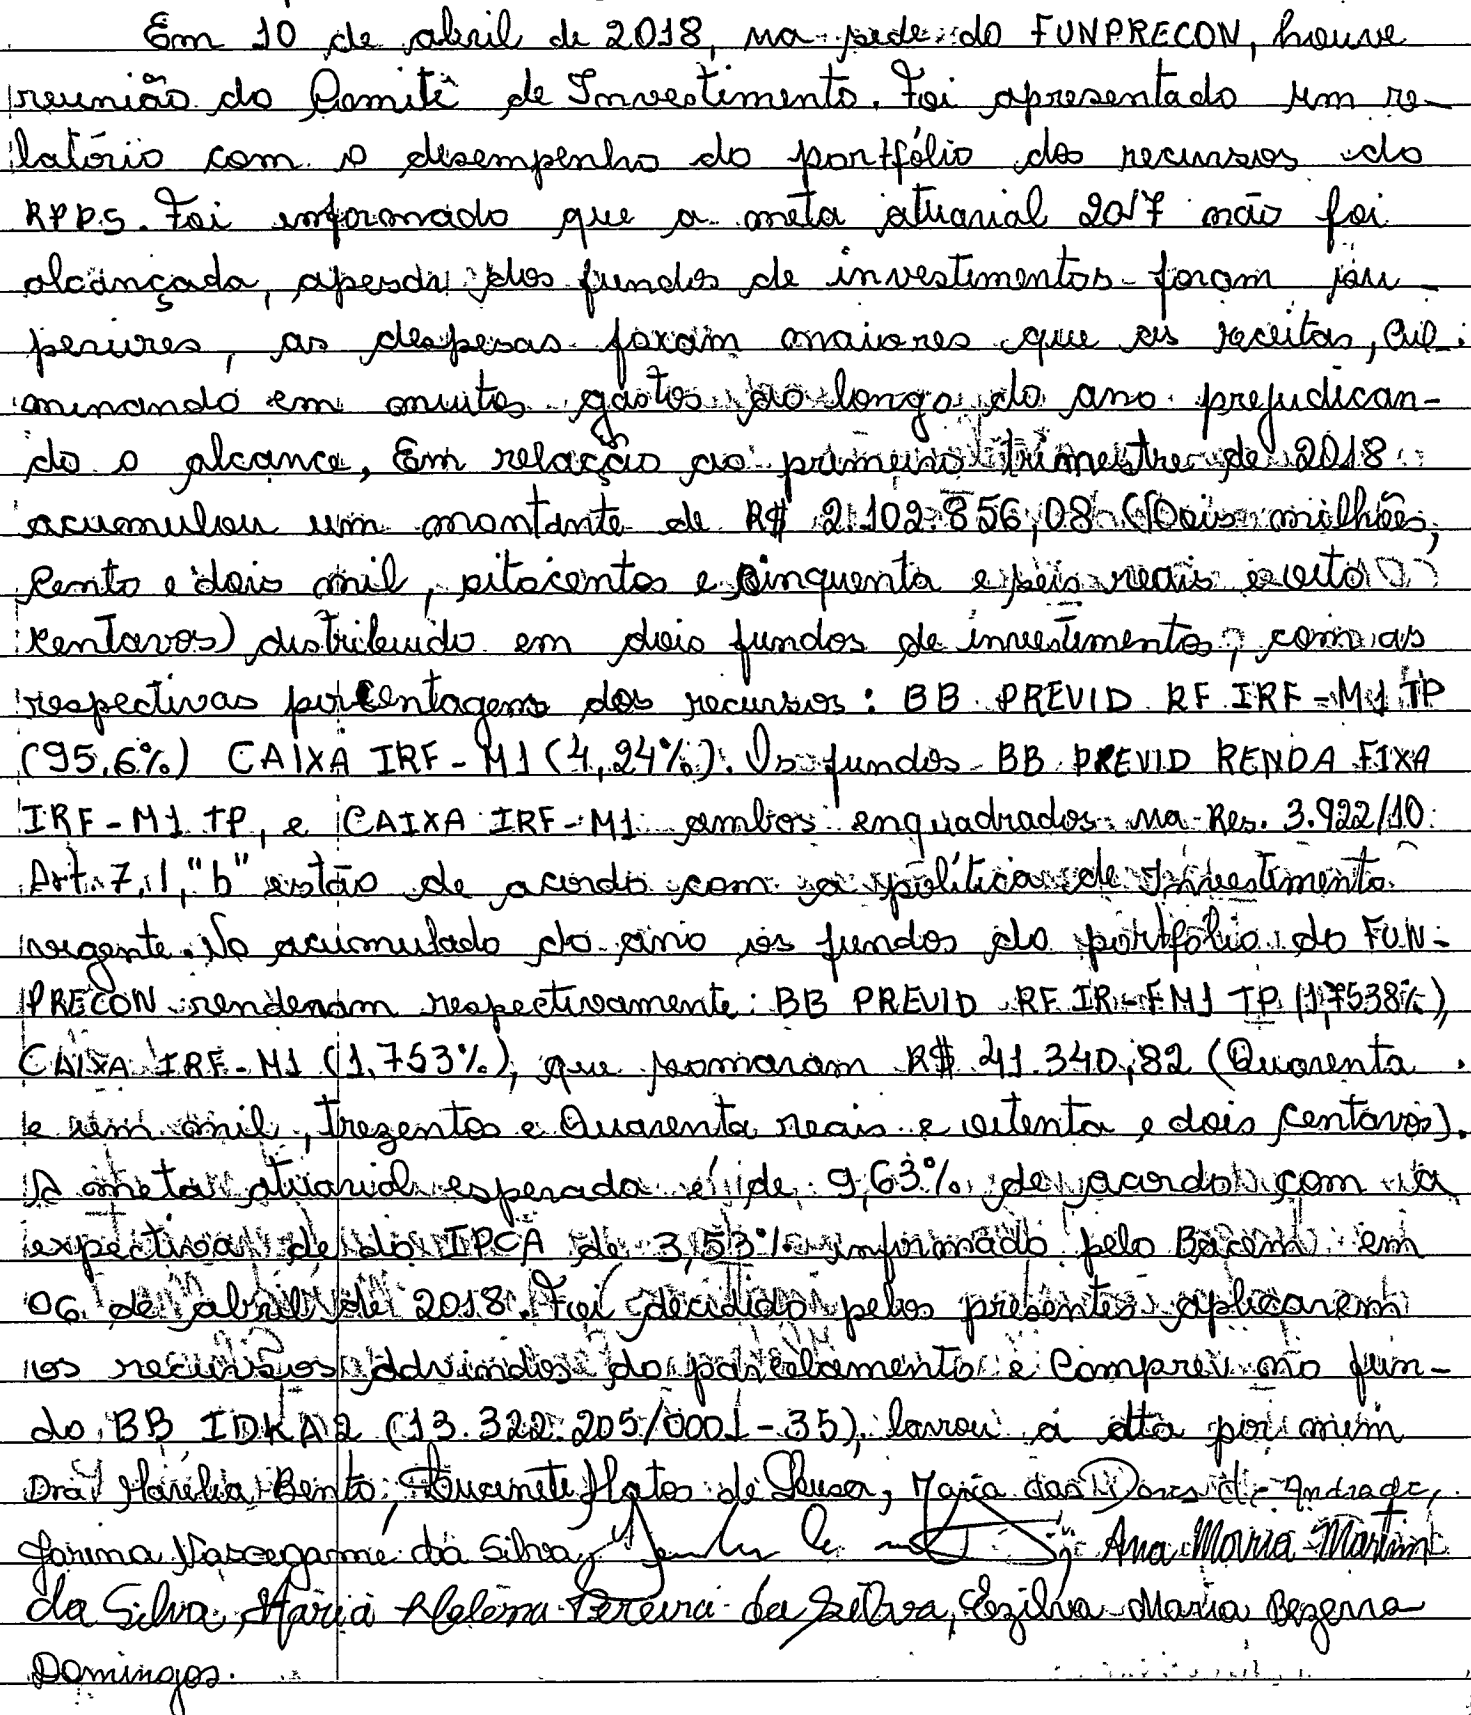 Em 10 de abril de 2018, na sede do FUNPRECON, houve
reunião do Comitê de Investimento. Foi apresentado um re-
latório com o desempenho do portfólio dos recursos do
RPPS. Foi informado que a meta atuarial 2017 não foi
alcançada, apesar dos fundos de investimentos foram su-
periores, as despesas foram maiores que as receitas, cul-
minando em muitos gastos ao longo do ano prejudican-
do o alcance, Em relação ao primeiro trimestre de 2018
acumulou um montante de R$ 2.102.856,08 (Dois milhões,
cento e dois mil, oitocentos e cinquenta e seis reais e oito
centavos) distribuido em dois fundos de investimentos, com as
respectivas porcentagens dos recursos: BB PREVID RF IRF-M1 TP
(95,6%) CAIXA IRF-M1 (4,24%). Os fundos BB PREVID RENDA FIXA
IRF-M1 TP, e CAIXA IRF-M1 ambos enquadrados na Res. 3.922/10
Art. 7, I, "b" estão de acordo com a política de Investimento
vigente. No acumulado do ano os fundos do portfólio do FUN-
PRECON renderam respectivamente: BB PREVID RF IR-FM1 TP (1,7538%),
CAIXA IRF-M1 (1.753%), que somaram R$ 41.340,82 (Quarenta
e um mil, trezentos e Quarenta reais e oitenta e dois centavos).
A meta atuarial esperada é de 9,63% de acordo com a
expectiva de do IPCA de 3,53% informado pelo Bacem em
06 de abril de 2018. Foi decidido pelos presentes aplicarem
os recursos advindos do parcelamento e Comprev no fun-
do BB IDKA2 (13.322.205/0001-35), lavrou a ata por mim
Dra Marília Bento, Lucinete Matos de Sousa, Maria das Dores de Andrade,
da Silva, Ana Maria Martins
da Silva, Maria Helena Pereira da Silva, Ezilva Maria Bezerra
Domingos.